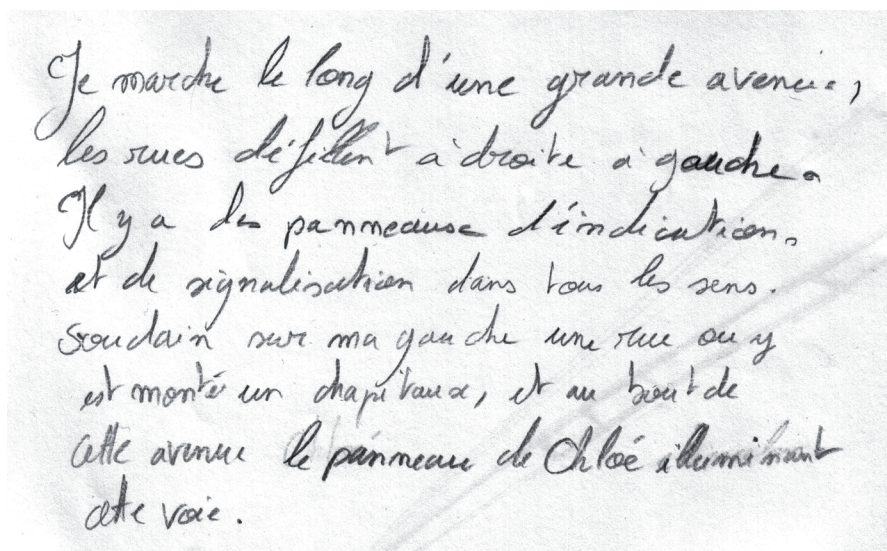 Je marche le long d'une grande avenue,
les rues défilent à droite à gauche.
Il y a des panneaux d'indication,
et de signalisation dans tous les sens.
Soudain sur ma gauche une rue ou y
est monté un chapitaux, et au bout de
cette avenue le panneau de Chloé illuminant
cette voie.